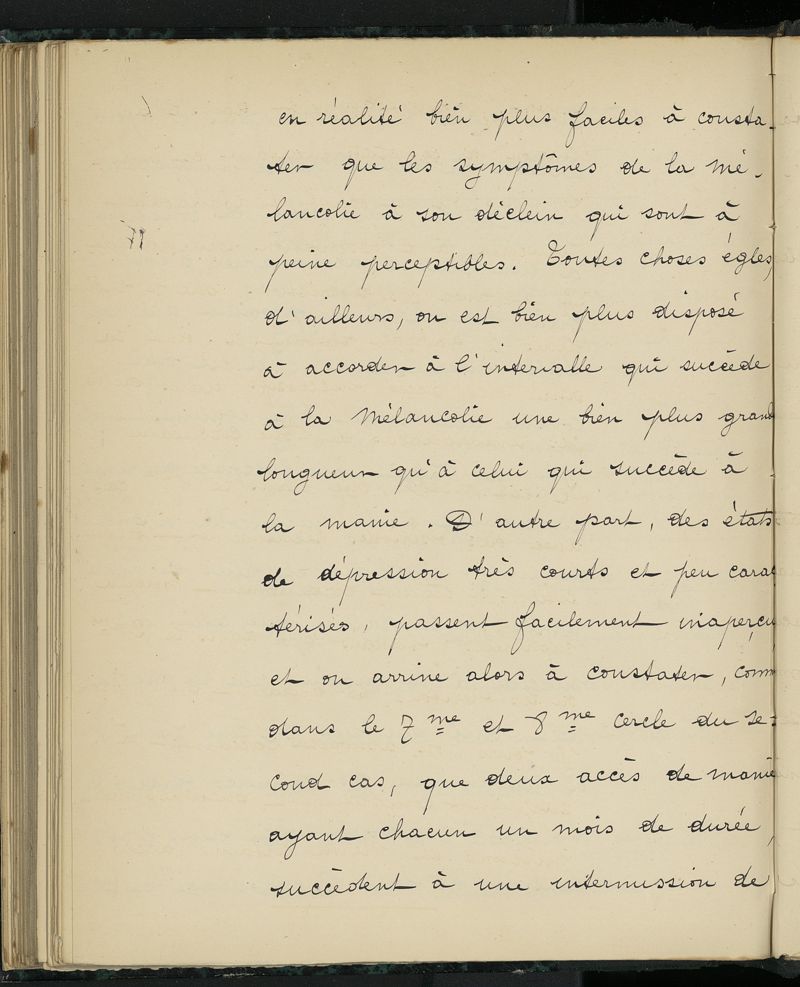 en réalité bien plus faciles à consta-
ter que les symptômes de la mé-
lancolie à son déclein qui sont à
79
peine perceptibles. Toutes choses égles,
d'ailleurs, on est bien plus disposé
à accorder à l'intervalle qui succède
à la Mélancolie une bien plus grand
longueur qu'à celui qui succède à
la manie. D'autre part, des états
de dépression très courts et peu carac
térisés, passent facilement inaperçu
et on arrive alors à constater, comm
dans le 7me et 8me cercle du se-
cond cas, que deux accès de manie
ayant chacun un mois de durée,
succèdent à une intermission de